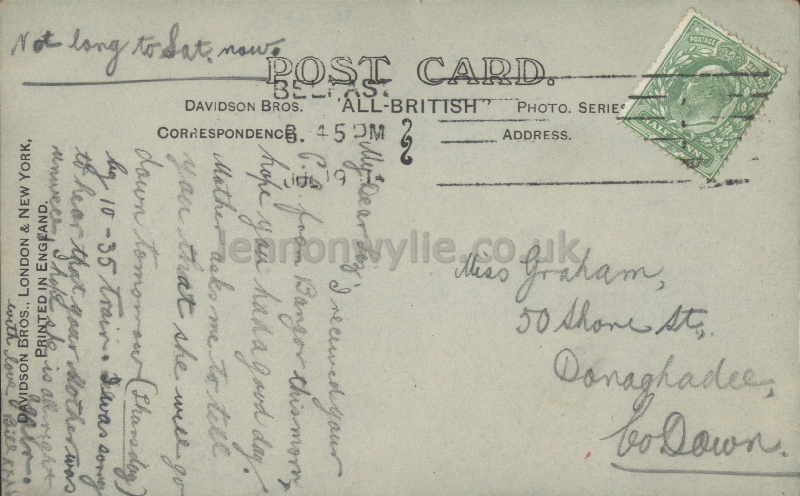 Not long to Sat. now.
POST CARD.
BELFAST
DAVIDSON BROS. "ALL-BRITISH" PHOTO. SERIES
CORRESPONDENCE
6. 45 PM
ADDRESS.
19
My Dear
I received your
P.C. from Bangor this morn,
hope you had a good day.
Mother asks me to tell
you that she will go
down tomorrow (Thursday)
by 10-35 train. I was sorry
to hear that your Mother was
unwell I hope she is alright
again.
with love Bill xxx
DAVIDSON BROS., LONDON & NEW YORK,
PRINTED IN ENGLAND.
Miss Graham,
50 Shore St.,
Donaghadee,
Co Down.
POSTAGE
HALFPENNY
lennonwylie.co.uk